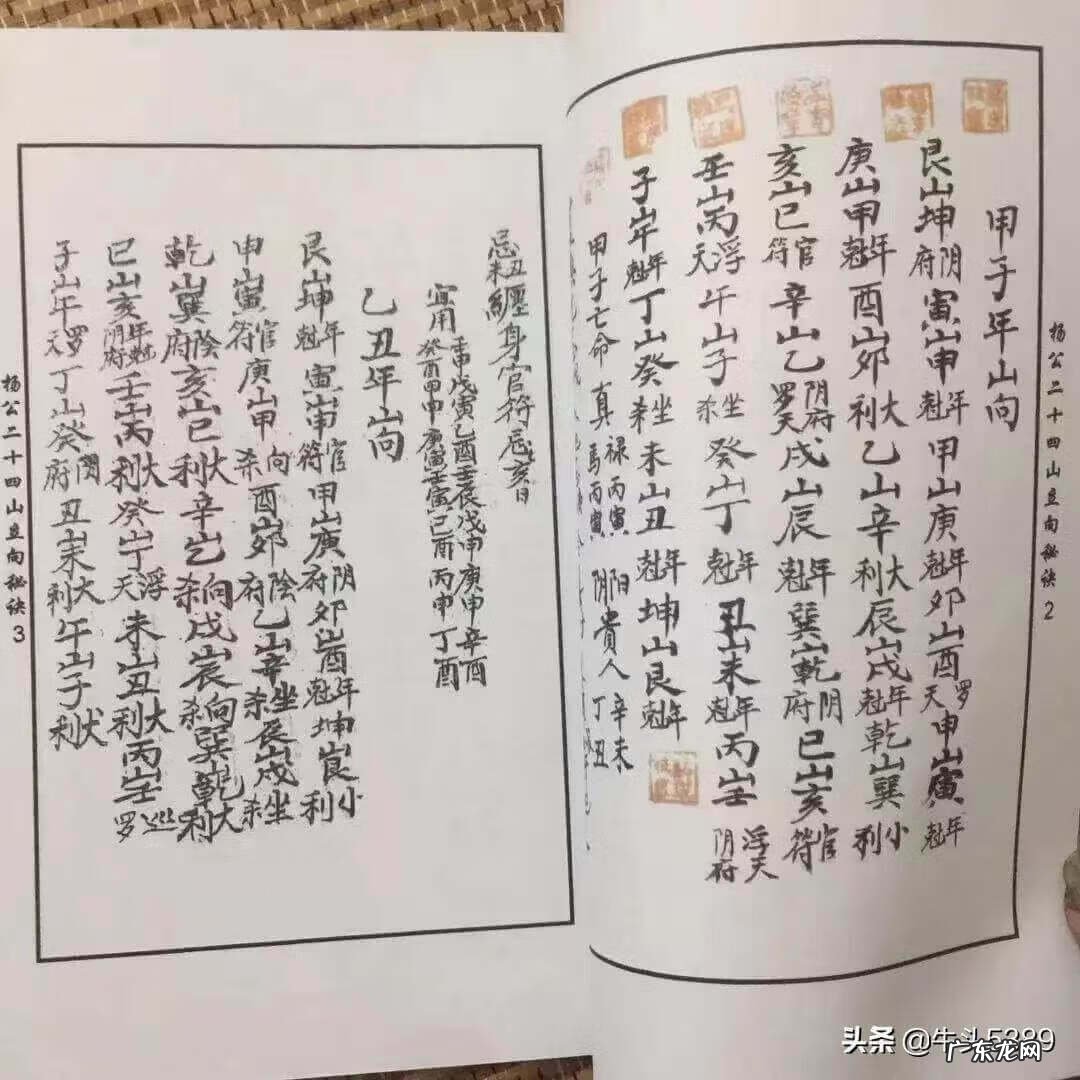 杨公二十四山立向秘诀 2
甲子年山向
艮山坤阴府寅山申年尅甲山庚年尅卯山酉罗天申山寅年尅
庚山甲年尅酉山卯大利乙山辛大利辰山戌年尅乾山巽小利
亥山巳官符辛山乙阴府罗天戌山辰年尅巽山乾阴府巳山亥官符
壬山丙浮天午山子坐杀癸山丁年尅丑山未年尅丙山壬浮天阴府
子山午年尅丁山癸坐杀未山丑年尅坤山艮年尅
甲子亡命真禄丙寅马丙寅阳阴貴人辛未丁丑
忌丑未纏身官符忌亥日
宜用壬申戊寅乙酉壬辰戊申庚申辛酉
癸酉甲申庚寅壬寅己酉丙申丁酉
乙丑年山向
艮山坤年尅寅山申官符甲山庚阴府卯山酉年尅坤山艮小利
申山寅官符庚山甲向杀酉山卯陰府乙山辛坐杀辰山戌坐杀
乾山巽陰府亥山巳大利辛山乙向杀戌山辰向杀巽山乾大利
巳山亥年尅阴府壬山丙大利癸山丁浮天未山丑大利丙山壬巡罗
子山午罗天丁山癸阴府丑山未大利午山子大利
杨公二十四山立向秘诀 3
头条 @牛头5389
广东龙网